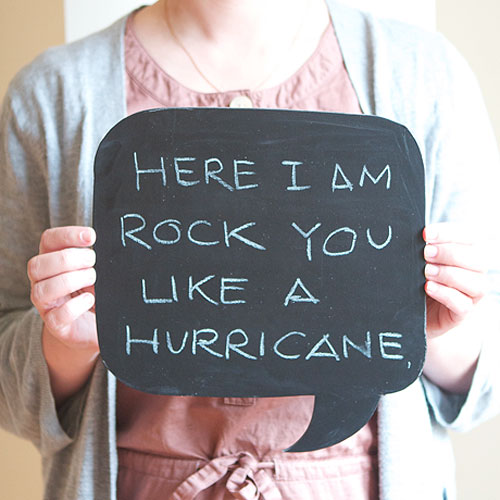 HERE I AM
ROCK YOU
LIKE A
HURRICANE.